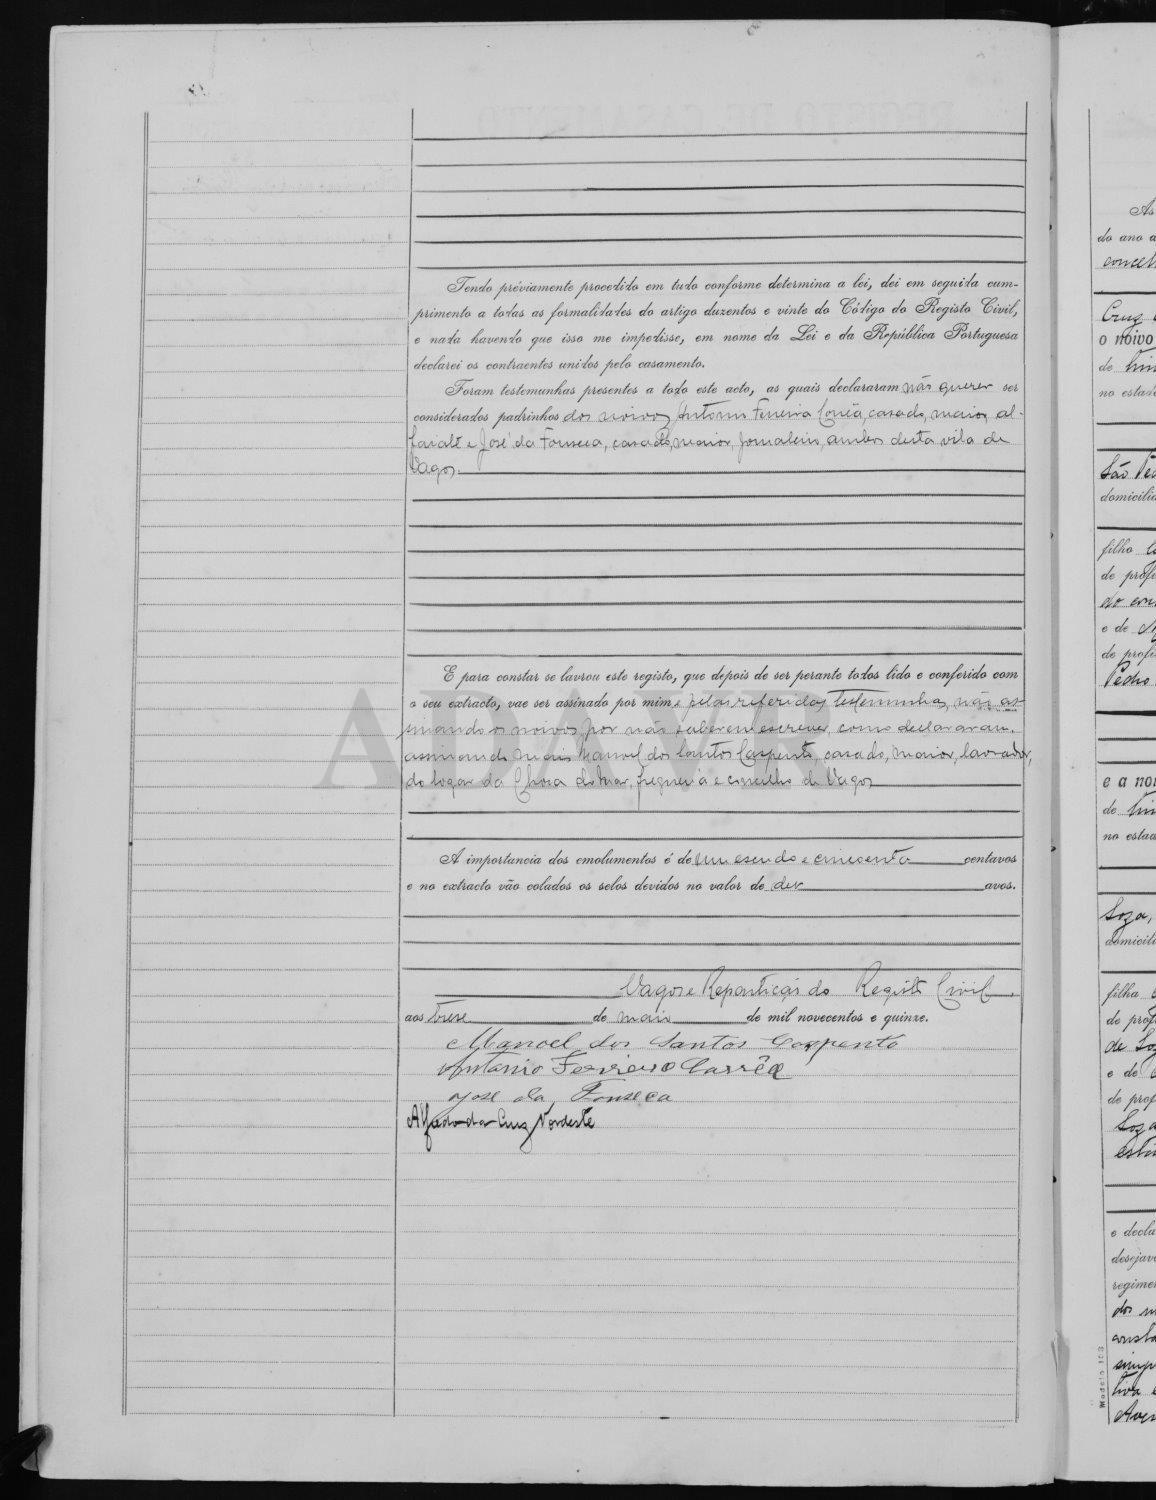 Tendo préviamente procedido em tudo conforme determina a lei, dei em seguida cum-
primento a todas as formalidades do artigo duzentos e vinte do Código do Registo Civil,
e nada havendo que isso me impedisse, em nome da Lei e da República Portuguesa
declarei os contraentes unidos pelo casamento.
Foram testemunhas presentes a todo este acto, as quais declararam não querer ser
considerados padrinhos dos noivos, Antonio Ferreira Corrêa, casado, maior, al-
faiate e José da Fonseca, casado, maior, jornaleiro, ambos desta vila de
Vagos.
E para constar se lavrou este registo, que depois de ser perante todos lido e conferido com
o seu extracto, vae ser assinado por mim e pelas referidas testemunhas, não as-
sinando os noivos, por não saberem escrever, como declararam.
assinando mais Manoel dos Santos Carpento, casado, maior, lavrador,
do logar da do Mar, freguesia e concelho de Vagos
A importancia dos emolumentos é de um escudo e cincoenta centavos
e no extracto vão colados os selos devidos no valor de dez avos.
Vagos e Repartição do Registo Civil
aos treze de maio de mil novecentos e quinze.
Manoel dos Santos Carpento
Antonio Ferreira Corrêa
José da Fonseca
Alfredo da Cruz Nordeste
ADAVR
As
do ano a
concelh
Cruz
o noivo
de
no estad
São Pe
domicilia
filho
de profi
do con
e de
de profi
Pedro
e a noi
de
no estad
Soza,
domicili
filha
de prof
de So
e de
de prof
Soza
e decla
desejav
regime
dos
Modelo 103